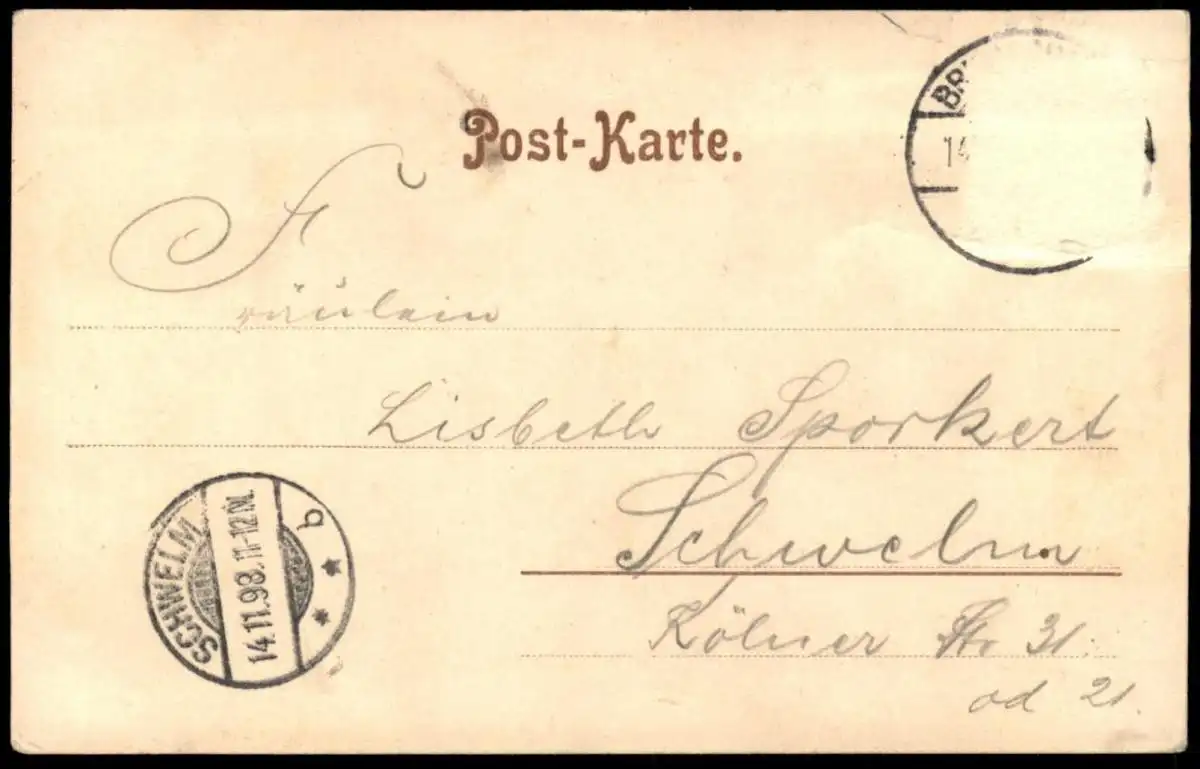 Post-Karte.
Fräulein
Lisbeth Sporkert
Schwelm
Kölner Str 31.
od 21.
SCHWELM
14.11.98.11-12N.
b
14